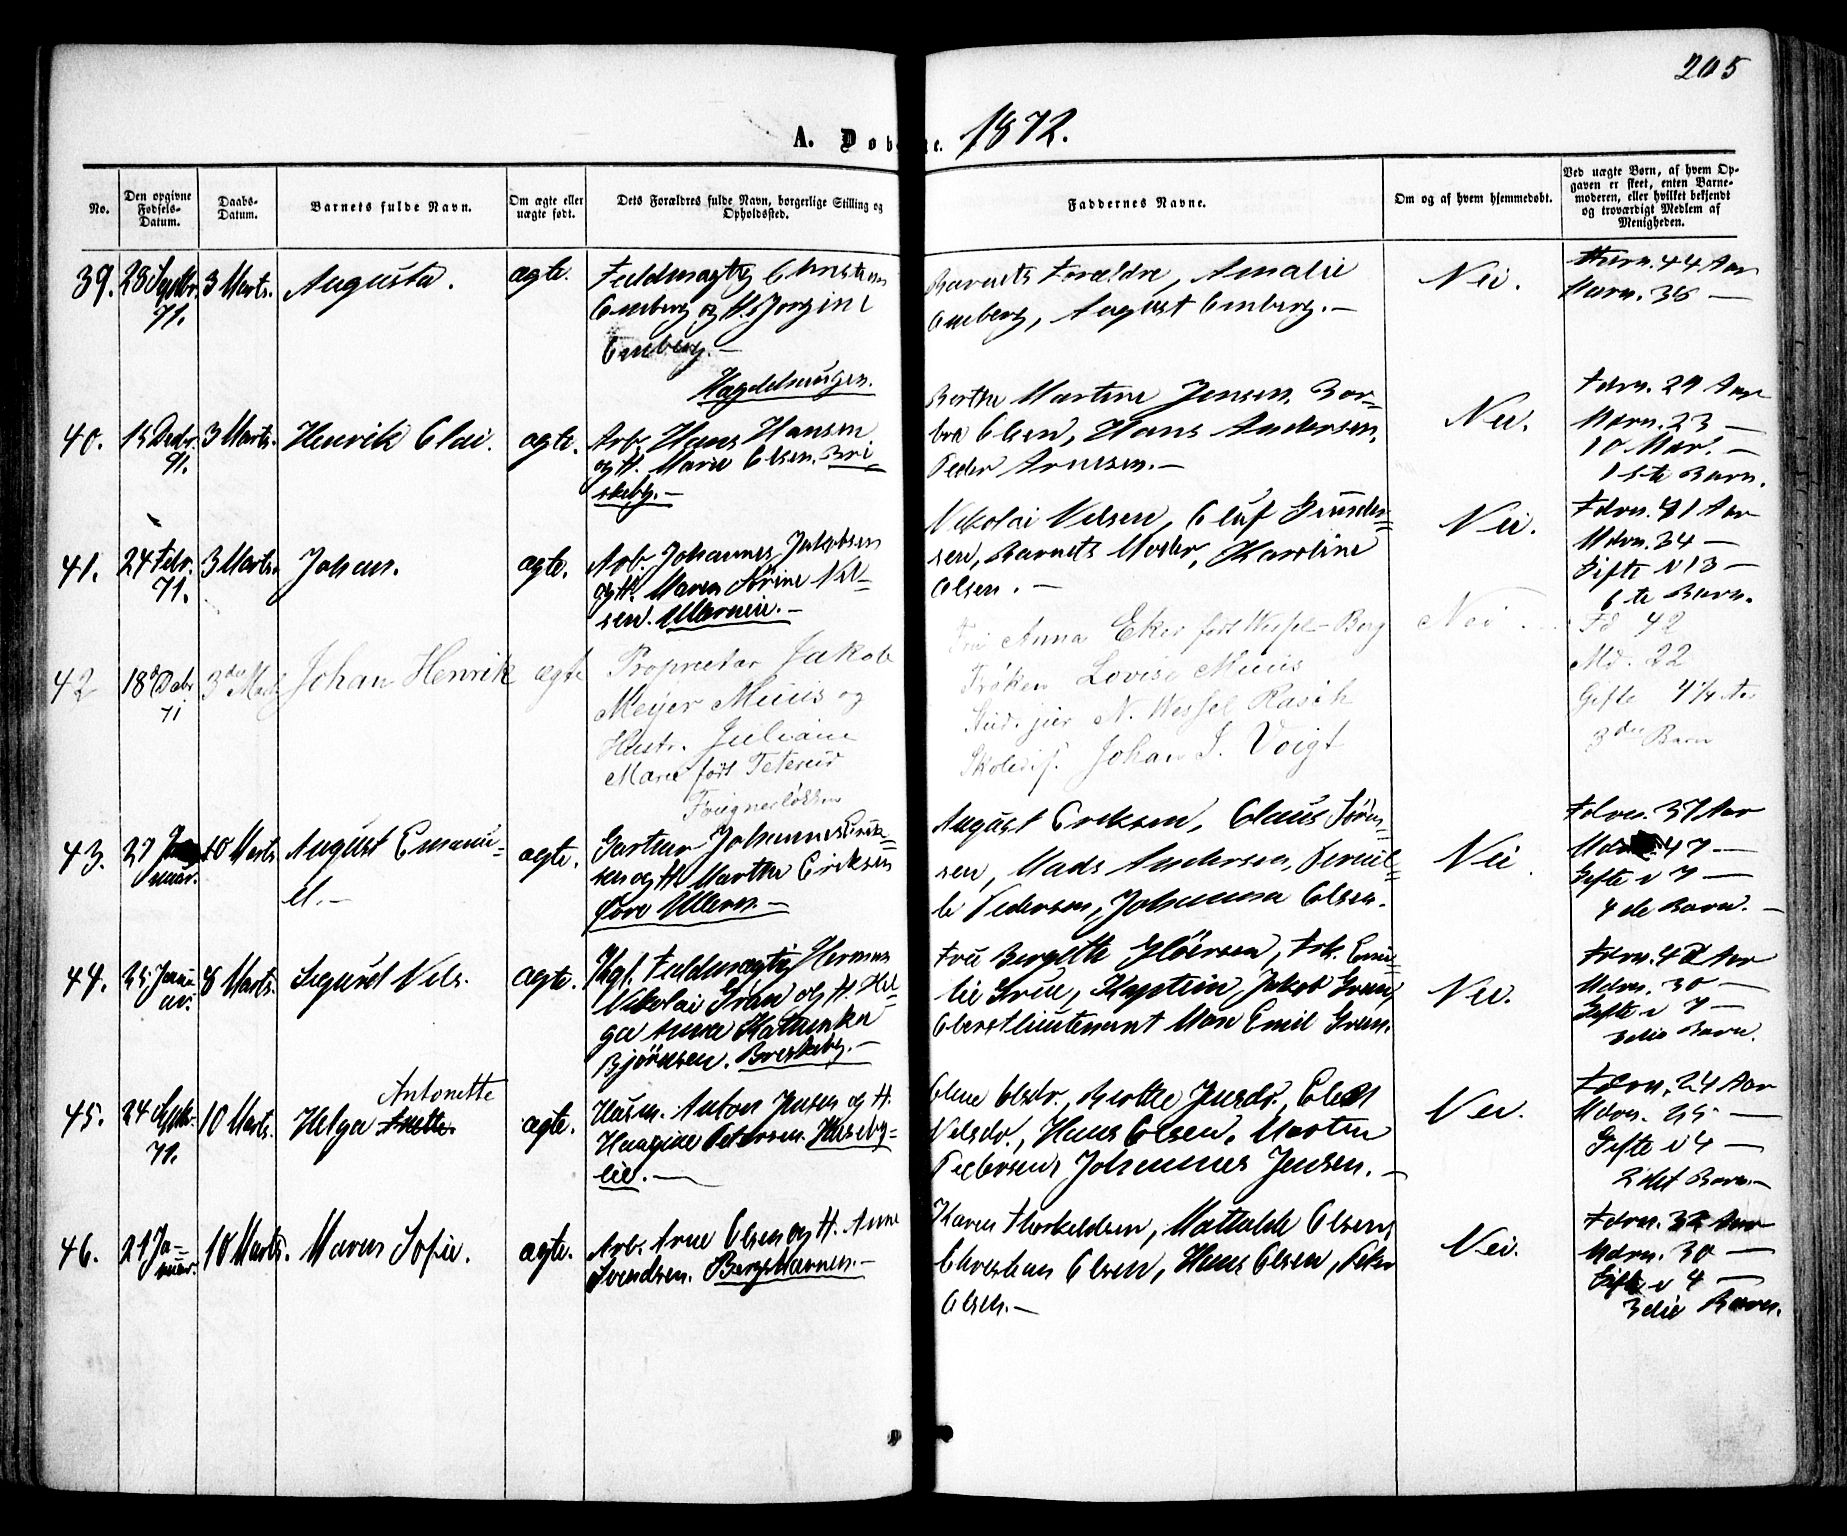 205
A. Døbte. 1872.
No.
Den opgivne Fødsels-Datum.
Daabs-Datum.
Barnets fulde Navn.
Om ægte eller uægte født.
Dets Forældres fulde Navn, borgerlige Stilling og Opholdssted.
Faddernes Navne.
Om og af hvem hjemmedøbt.
Ved uægte Børn, af hvem Opgaven er skeet, enten Barnemoderen, eller hvilket bekjendt og troværdigt Medlem af Menigheden.
39. 28 Septbr. 71. 3 Marts. Augusta. ægte.
Fuldmægtig
Emberg og H. Jorgine
Emberg.—
Barnets Forældre, Amalie
Emberg, August Emberg.—
Nei.
44 Aar
35 —
40. 15 Decbr. 71. 3 Marts. Henrik Olai. ægte.
Arb. Hans Hansen
og H. Marie Olsen. Bri-
skeby.—
Berthe Martine Jensen, Bar-
bra Olsen, Hans Andersen,
Peder Arnesen.—
Nei.
Fdrn. 29 Aar
Mdrn. 23 —
10 Mdr. —
1ste Barn.
41. 24 71. 3 Marts. Johan. ægte.
Arb. Johannes Jakobsen
og H. Maren Sørine Nil-
sen. Ullernein.—
Nikolai Nilsen, Oluf Gunder-
sen, Barnets Moder, Karoline
Olsen.—
Nei.
Fdrn. 41 Aar
Mdrn. 34 —
Gifte i 13 —
6te Barn.
42 18d Dcbr 71 3die Marts Johan Henrik ægte
Proprietær Jakob
Meyer Muus og
Hustr. Juliane
Marie født
Fru Anna Eker født Wessel-Berg
Frøken Lovise Muus
Stud. jur N. Wessel Rasch
Johan J. Voigt
Nei.
Fd 42
Md. 22
Gifte 4¼ Aar
3die Barn
43. 27 Januar. 10 Marts. August Emanu-
el.— ægte.
Gartner Johannes Erik-
sen og H. Marthe Eriksen
Øvre Ullern.—
August Eriksen, Claus Søren-
sen, Mads Andersen, Pernil-
le Pedersen, Johanna Olsen.
Nei.
Fdrn. 37 Aar
Mdrn. 47 —
Gifte i 7 —
4de Barn.—
44. 25. Janu-
ar. 8 Marts. Sigurd Nils. ægte.
Kgl. Fuldmægtig Herman
Nikolai Gran og H. Hel-
ga Anna Kathinka
Bjørnsen. Briskeby.—
Frk. Emi-
lie Kaptein Jakob
Oberstlieutenant Emil
Nei.
Fdrn. 42 Aar
Mdrn. 30 —
Gifte i 7 —
3die Barn.
45. 24 Septbr. 71. 10 Marts. Helga Antonette. ægte.
Husm. Anton Jensen og H.
Petersen. Huseby-
eie.—
Oline Olsdr., Berthe Jensdr.,
Nilsdr., Hans Olsen, Martin
Pedersen, Johannes Jensen.—
Nei.
Fdrn. 24 Aar
Mdrn. 25 —
Gifte i 4 —
2det Barn.—
46. 21 Ja-
nuar. 10 Marts. Maren Sofie. ægte.
Arb. Arne Olsen og H. Anne
Svendsen. Bergshavnen.—
Karen Thorkildsen, Mathilde Olsen,
Christian Olsen, Hans Olsen, Peter
Olsen.—
Nei.
Fdrn. 32 Aar
Mdrn. 30 —
Gifte i 4 —
3die Barn.